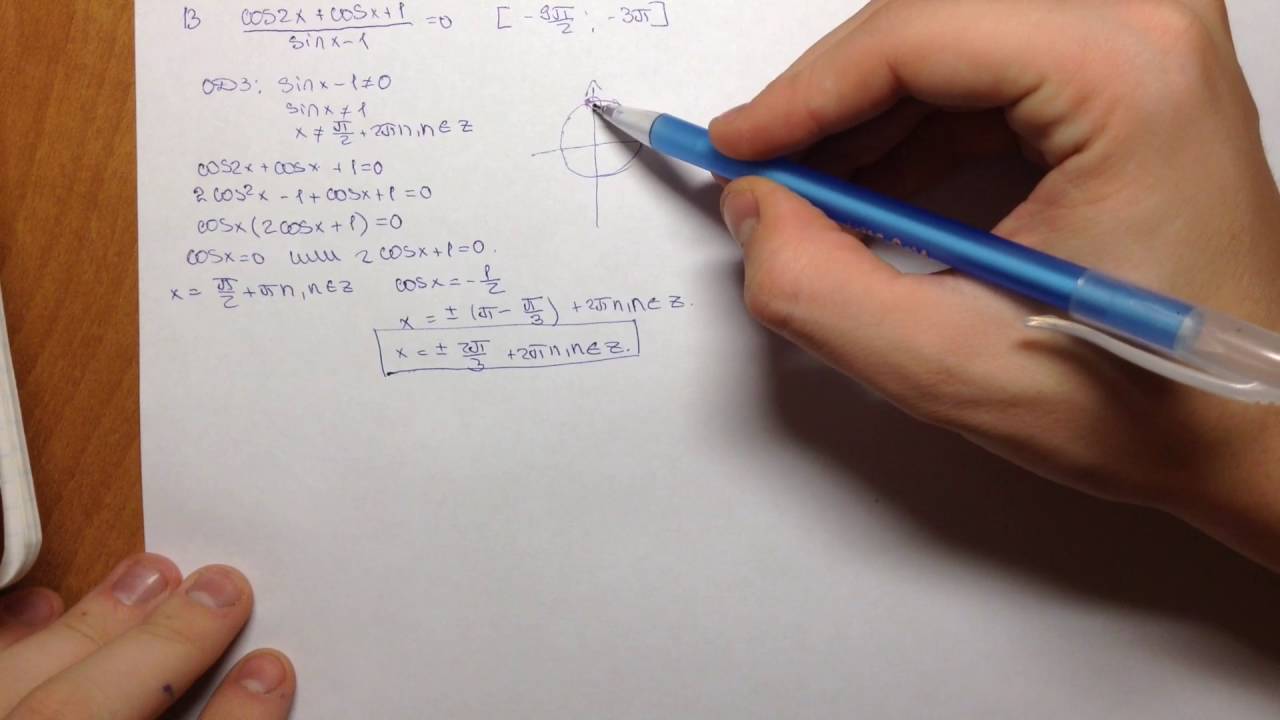 13 (cos2x + cosx + 1)/(sinx - 1) = 0 [-9π/2 ; -3π]
ОДЗ: sinx - 1 ≠ 0
sinx ≠ 1
x ≠ π/2 + 2πn, n ∈ Z
cos2x + cosx + 1 = 0
2cos²x - 1 + cosx + 1 = 0
cosx(2cosx + 1) = 0
cosx = 0 или 2cosx + 1 = 0.
x = π/2 + πn, n ∈ Z cosx = -1/2
x = ± (π - π/3) + 2πn, n ∈ Z.
x = ± 2π/3 + 2πn, n ∈ Z.